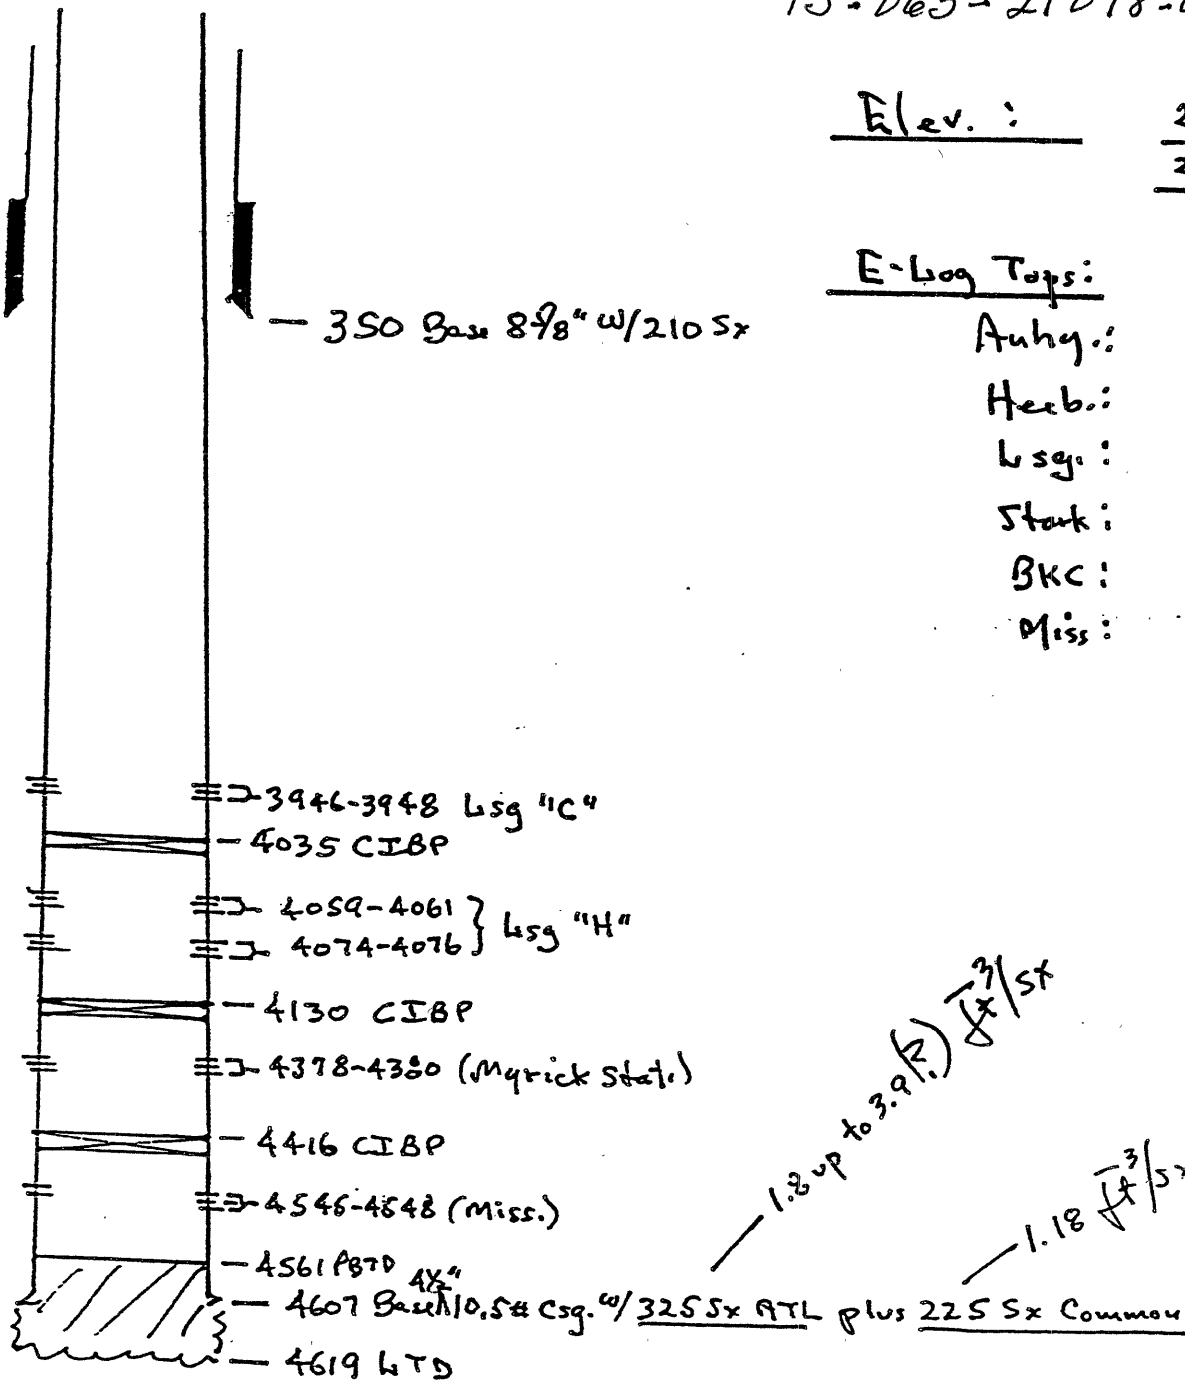 Elev. : 2
2
E-Log Tops:
Anhy.:
Heeb.:
Lsg. :
Stark :
BKC :
Miss :
350 Base 8 5/8" w/210 Sx
3946-3948 Lsg "C"
4035 CIBP
4059-4061 } Lsg "H"
4074-4076
4130 CIBP
4378-4380 (Myrick Stat.)
4416 CIBP
4546-4548 (Miss.)
4561 PBTD
4607 Base 4½" 10.5# Csg. w/ 325 Sx ATL plus 225 Sx Common
1.8 up to 3.9(?) ft³/sx
1.18 ft³/sx
4619 LTD